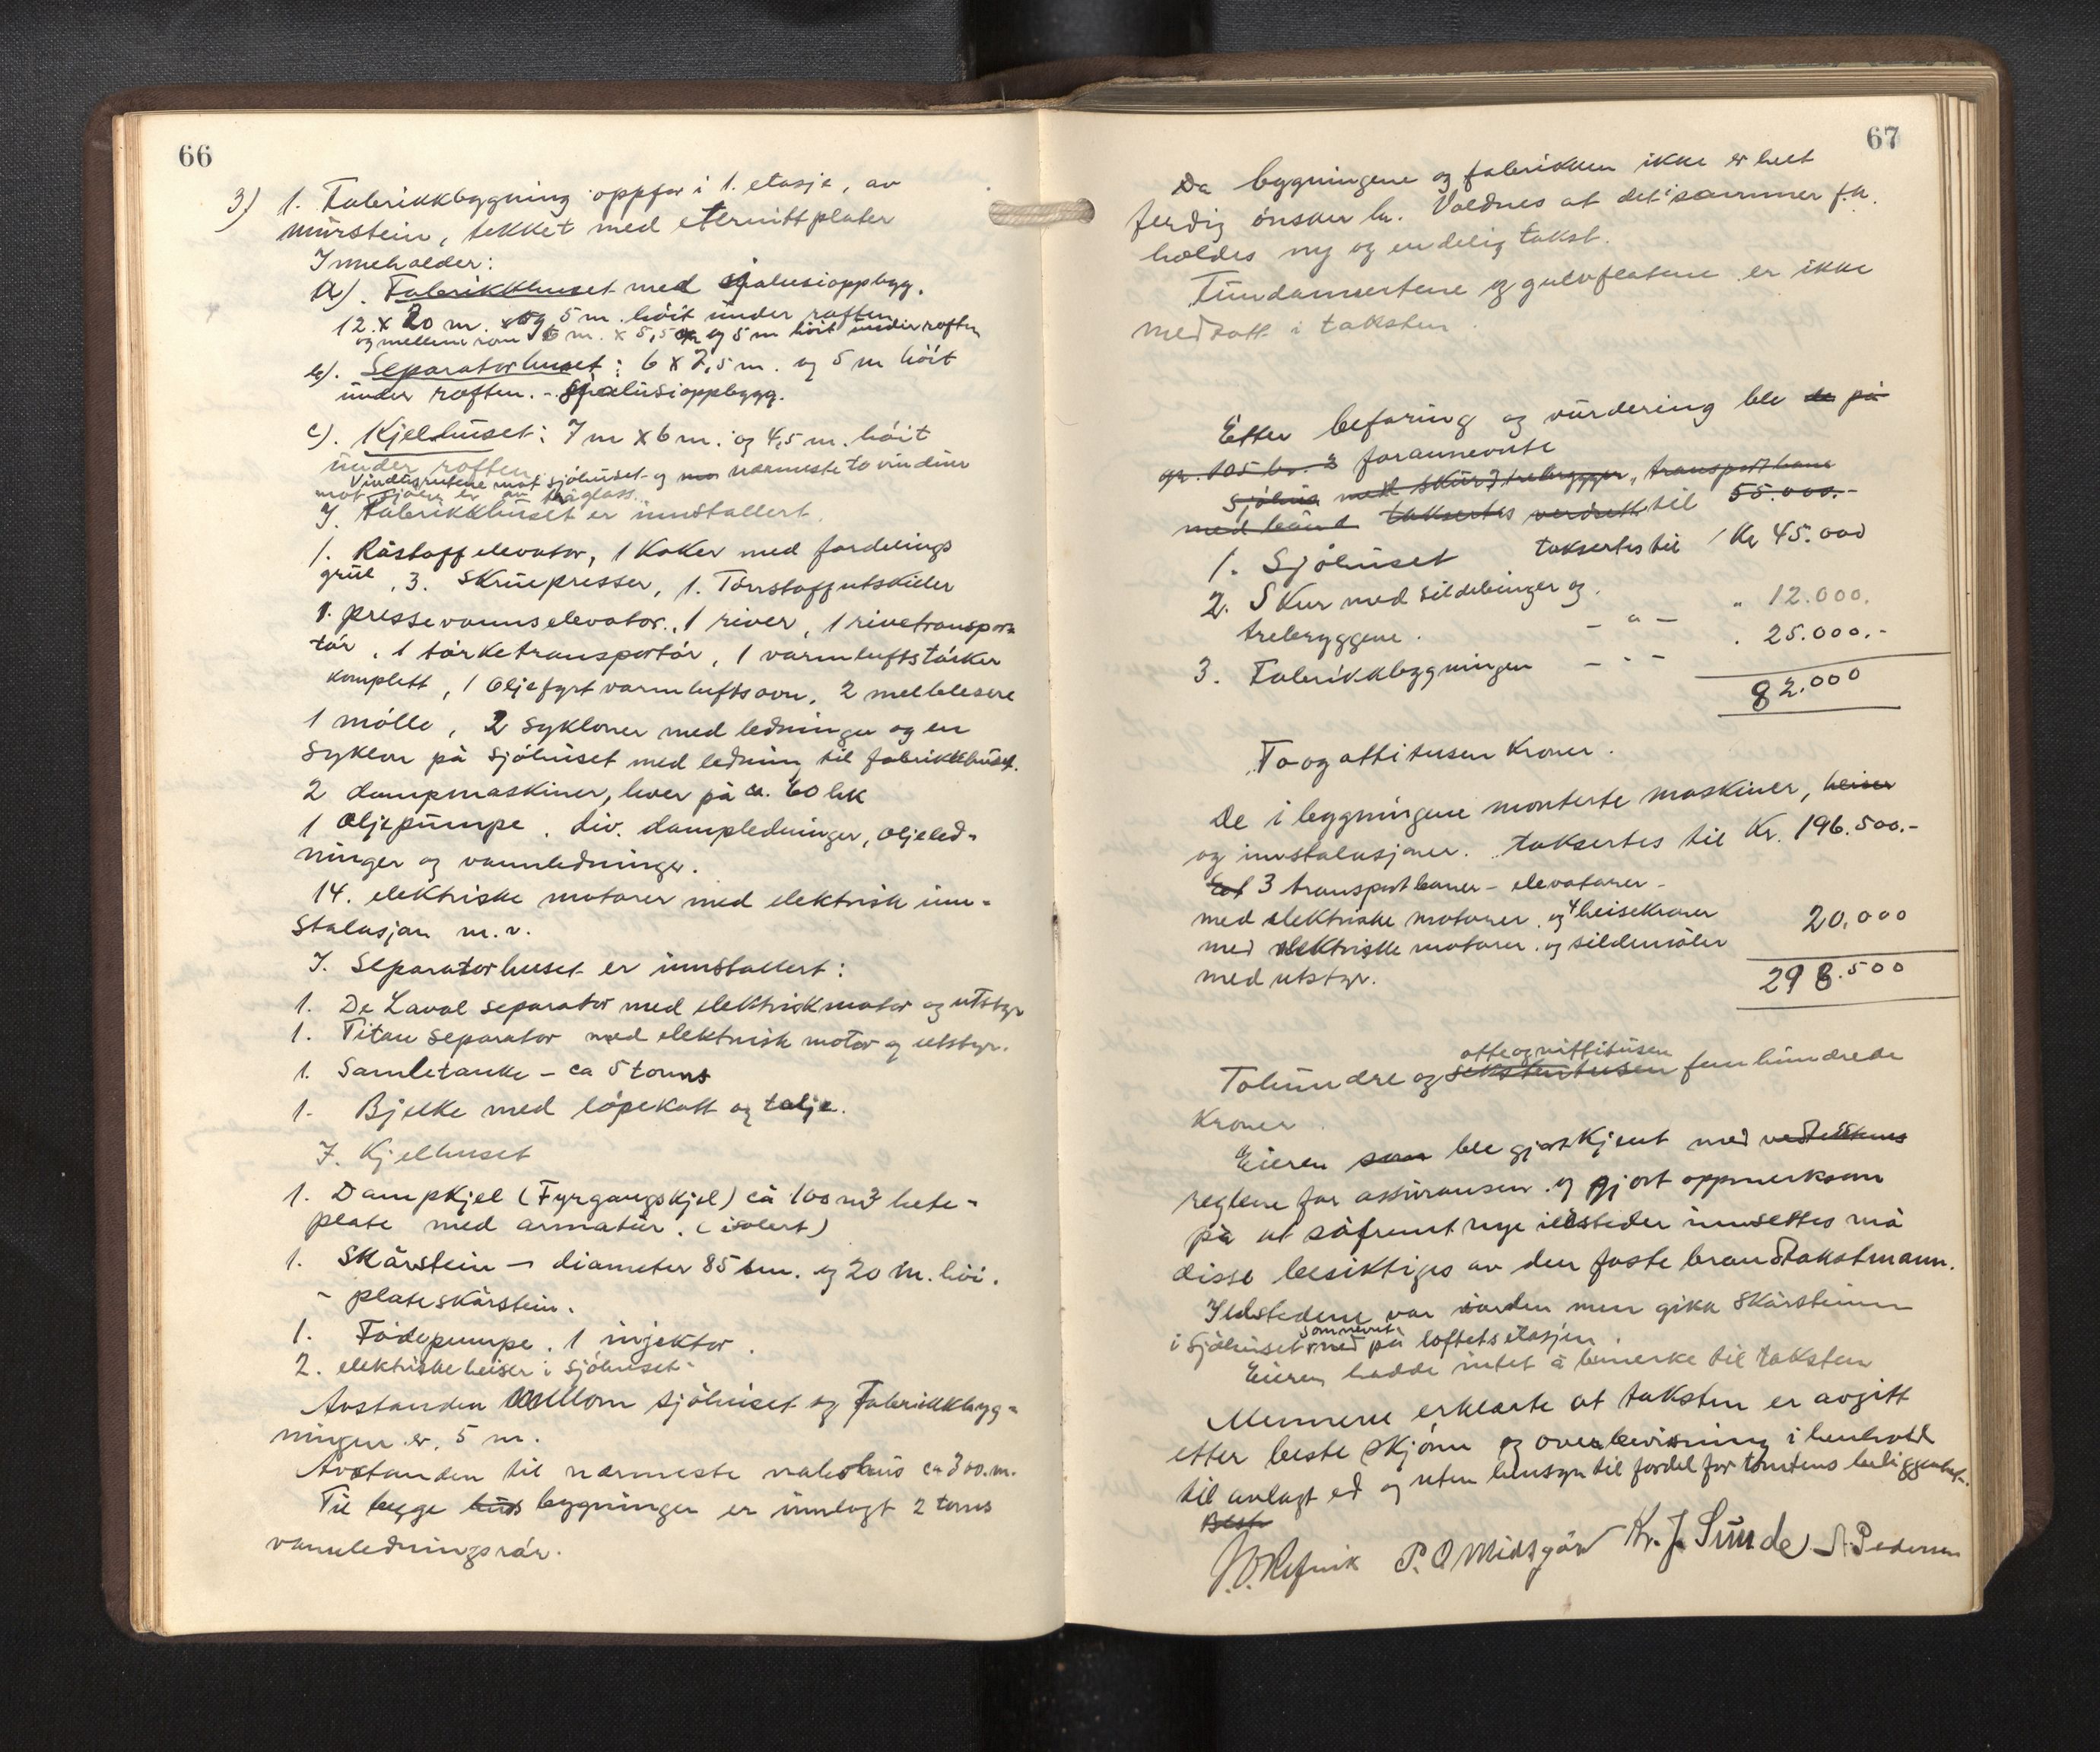 66
3) 1. Fabrikkbygning oppfør i 1. etasje, av
mürstein, tekket med eternittplater
Inneholder:
a). Fabrikkhuset med sjalusioppbygg.
12 x 20 m. og 5 m. höit ünder raften
og mellem rom 6 m. x 5,5 og 5 m höit ünder raften
b). Separatorhuset: 6 x 7,5 m. og 5 m höit
ünder raften. - Sjalüsioppbygg.
c). Kjelhüset: 7 m x 6 m. og 4,5 m. höit
ünder raften.
Vindüsrutene mot sjöhüset og nærmeste to vindüer
mot sjöen er av tråglass.
I. Fabrikkhüset er innstallert.
1. Råstoffelevator, 1 Koker med fordelings
grüe, 3. Skrüepresser, 1. Törrstoffutskiller
1. pressevannselevator, 1 river, 1 rivetranspor-
tör, 1 törketransportör, 1 varmluftstörker
komplett, 1 Oljefyrt varmluftsovn, 2 melblesere
1 mölle, 2 Sykloner med ledninger og en
Syklon på Sjöhüset med ledning til fabrikkhüset.
2 dampmaskiner, hver på ca. 60 hk
1 Oljepümpe. div. dampledninger, oljeled-
ninger og vannledninger.
14. elektriske motorer med elektrisk inn-
stalasjon m.v.
I. Separatorhuset er innstallert:
1. De Laval separator med elektrisk motor og utstyr
1. Titan separator med elektrisk motor og utstyr.
1. Samletanke - ca 5 tonns
1. Bjelke med löpekatt og talje.
I. Kjelhuset
1. Dampkjel (Fyrgangskjel) ca 100 m² hete-
plate med armatür. (isolert)
1. Skårstein - diameter 85 cm. og 20 m. höi.
- plateskårstein.
1. Födepumpe. 1 injektor.
2. elektriske heiser i Sjöhuset.
Avstanden mellom sjöhüset og Fabrikkbyg-
ningen er. 5 m.
Avstanden til nærmeste nabohüs ca 300. m.
Til begge hüs bygninger er innlagt 2 toms
vannledningsrör.
67
Da bygningene og fabrikken ikke er helt
ferdig önsker hr. Valdnes at det i sommer f.k.
holdes ny og endelig takst.
Fündamentene og gulvflatene er ikke
medtatt i taksten.
Etter befaring og vürdering ble de på
gr. 105 br. 3 forannevnte
Sjöhüs med skür I trebrygger, transportbane
med bånd taksertes verdsett til 55.000.-
1. Sjöhüset taksertes til Kr 45.000
2. Skur med sildebinger og
trebryggene. - " - " 12.000.
3. Fabrikkbygningen - " - . 25.000.-
82.000
To og åttitusen Kroner.
De i bygningene monterte maskiner, heiser
og innstalasjoner. taksertes til Kr. 196.500.-
3 transportbaner - elevatorer -
med elektriske motorer. og 4 heisekraner
med elektriske motorer. og sildemåler 20,000
med utstyr.
298.500
Tohündre og sekstentusen åtteognittitüsen femhündrede
Kroner.
Eieren som ble gjort Kjent med vedtektens
reglene for assüransen. og gjort oppmerksom
på at såfremt nye ildsteder innsettes må
disse besiktiges av den faste brandtakstmann.
Ildstedene var i orden men gikk Skårsteinen
i Sjöhüset som nevnt med på loftsetasjen.
Eieren hadde intet å bemerke til taksten
Mennene erklærte at taksten er avgitt
etter beste skjönn og overbevisning i henhold
til avlagt ed og uten hensyn til fordel for tomtens beliggenhet.
P. O Midtgår Kr. J. Sünde A. Pedersen